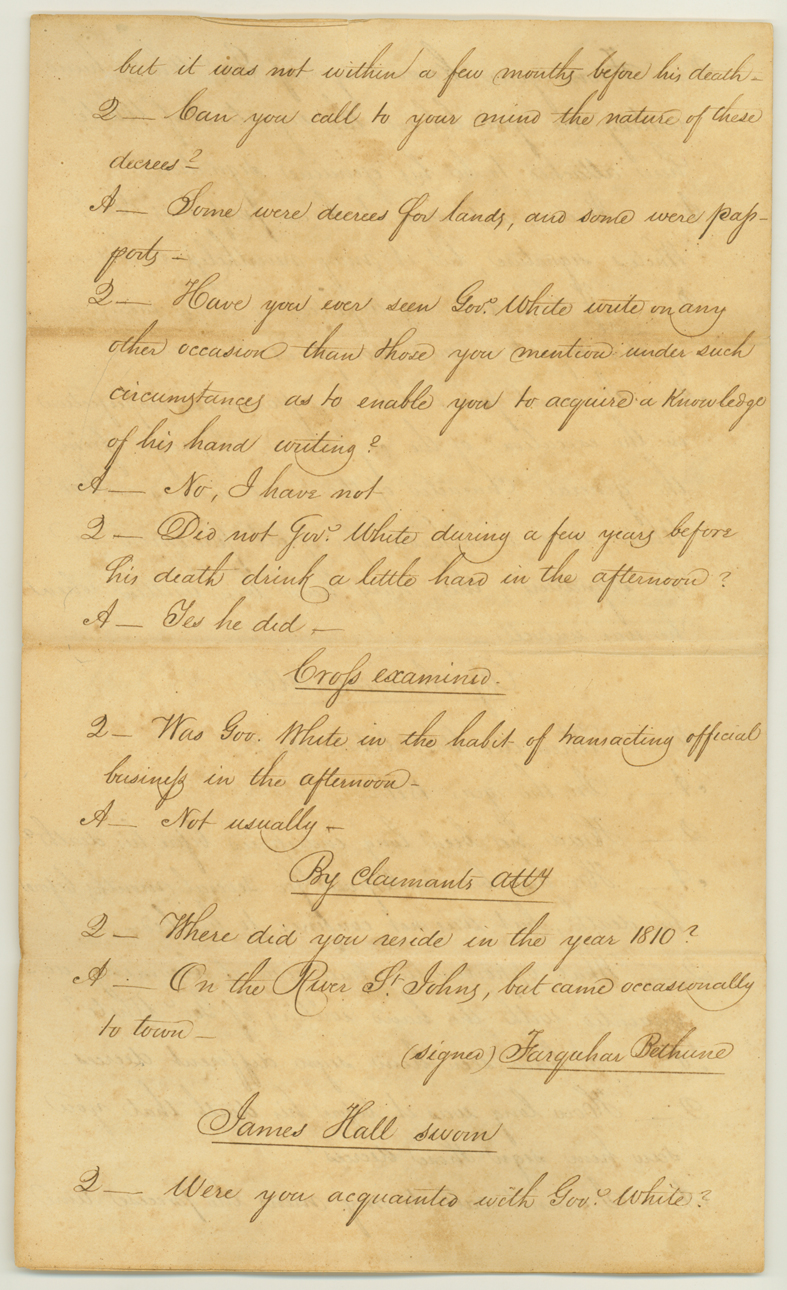 but it was not within a few months before his death –
Q — Can you call to your mind the nature of these
decrees? –
A — Some were decrees for lands, and some were pass-
ports –
Q — Have you ever seen Govr. White write on any
other occasion than those you mention under such
circumstances as to enable you to acquire a Knowledge
of his hand writing?
A — No, I have not
Q — Did not Govr. White during a few years before
his death drink a little hard in the afternoon?
A — Yes he did —
Cross examined.
Q — Was Gov. White in the habit of transacting official
business in the afternoon –
A — Not usually –
By Claimants atty
Q — Where did you reside in the year 1810?
A — On the River St. Johns, but came occasionally
to town –
(signed) Farquhar Bethune
James Hall sworn
Q — Were you acquainted with Govr. White?